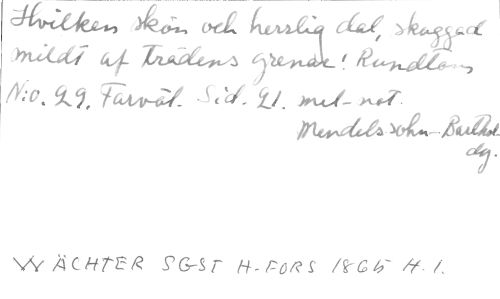 Hvilken skön och herrlig dal, skuggad
mildt af trädens grenar! Rundtom
N:o. 29. Farväl. Sid. 21. mel-not.
Mendelssohn-Barthol-
dy.
WÄCHTER SGST H-FORS 1865 H. 1.